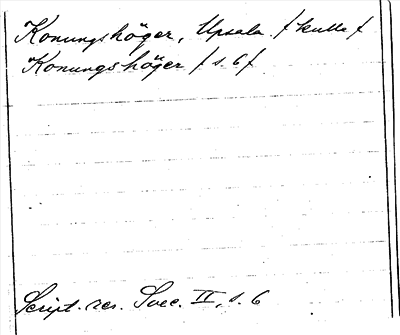 Konungshöger, Upsala. / kulle /
Konungshöger / s. 6 /
Script. rer. Svec. II, s. 6